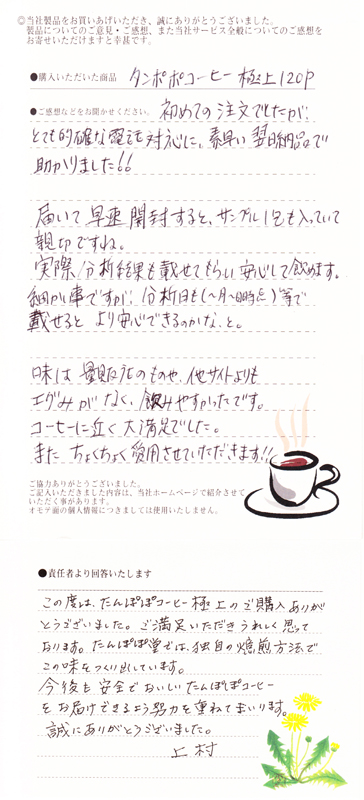 ◎当社製品をお買いあげいただき、誠にありがとうございました。
製品についてのご意見・ご感想、また当社サービス全般についてのご感想を
お寄せいただけますと幸甚です。
●購入いただいた商品 タンポポコーヒー 極上120P
●ご感想などをお聞かせください。 初めての注文でしたが、
とても的確な電話対応に、素早い翌日納品で
助かりました!!
届いて早速開封すると、サンプル1包も入っていて
親切ですね。
実際分析結果も載せてもらい安心して飲めます。
細かい事ですが、分析日も(〜月〜日時点)等で
載せるとより安心できるのかな、と。
味は量販店のものや、他サイトよりも
エグみがなく、飲みやすかったです。
コーヒーに近く大満足でした。
また ちょくちょく愛用させていただきます!!
ご協力ありがとうございました。
ご記入いただきました内容は、当社ホームページで紹介させて
いただく事があります。
オモテ面の個人情報につきましては使用いたしません。
●責任者より回答いたします
この度は、たんぽぽコーヒー極上のご購入ありが
とうございました。ご満足いただきうれしく思って
おります。たんぽぽ堂では、独自の焙煎方法で
この味をつくり出しています。
今後も安全でおいしいたんぽぽコーヒー
をお届けできるよう努力を重ねてまいります。
誠にありがとうございました。
上村